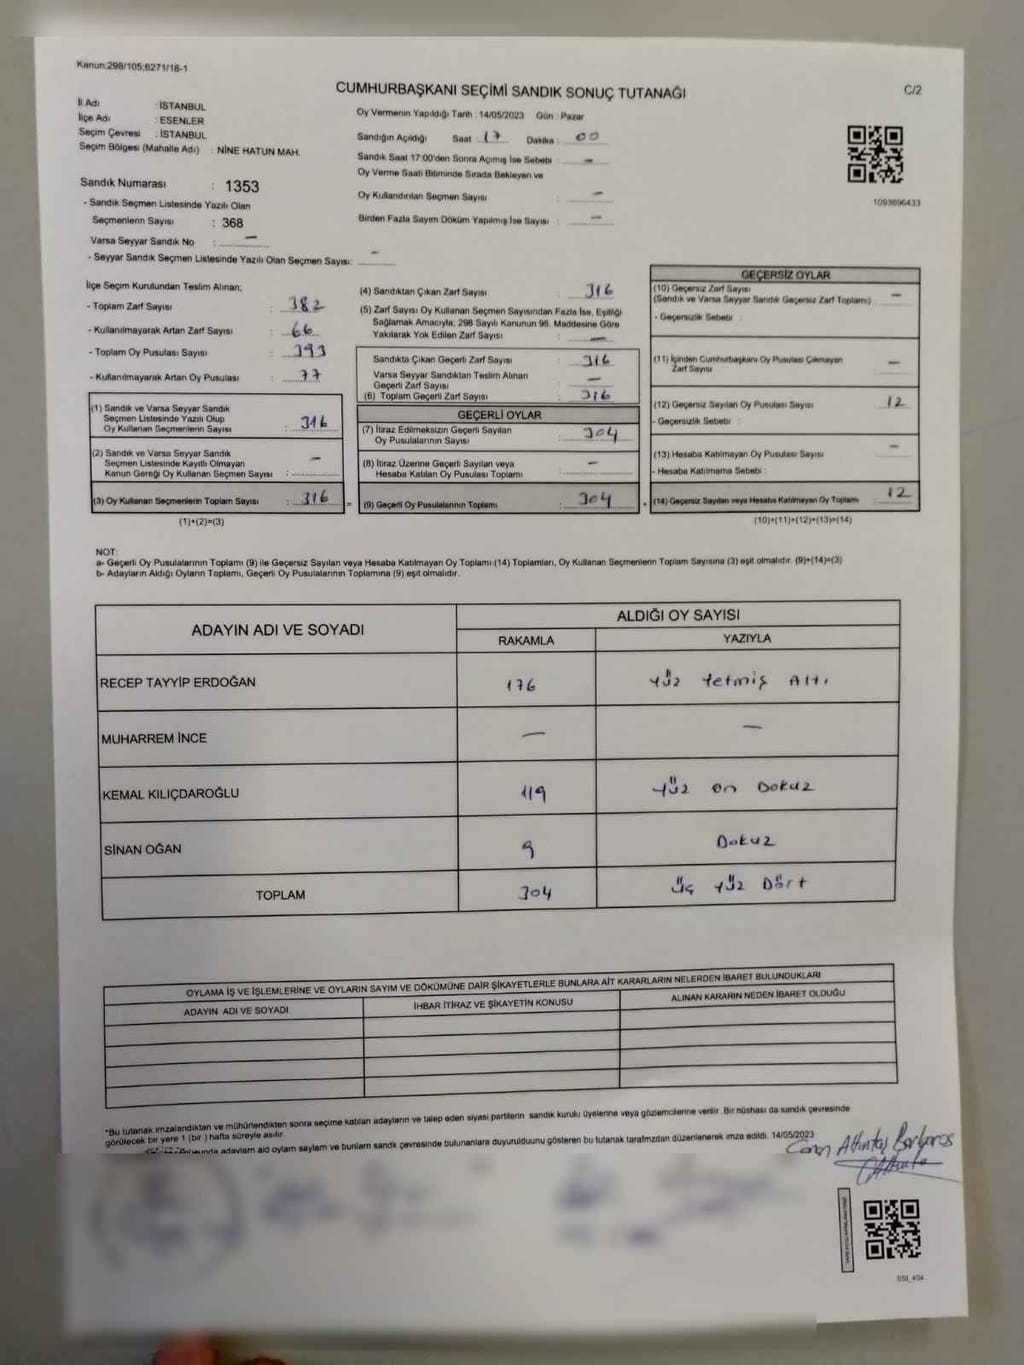 Kanun:298/105;6271/18-1
CUMHURBAŞKANI SEÇİMİ SANDIK SONUÇ TUTANAĞI
C/2
İl Adı : İSTANBUL
İlçe Adı : ESENLER
Seçim Çevresi : İSTANBUL
Seçim Bölgesi (Mahalle Adı) : NİNE HATUN MAH.
Sandık Numarası : 1353
- Sandık Seçmen Listesinde Yazılı Olan
Seçmenlerin Sayısı : 368
Varsa Seyyar Sandık No : —
- Seyyar Sandık Seçmen Listesinde Yazılı Olan Seçmen Sayısı: —
Oy Vermenin Yapıldığı Tarih : 14/05/2023 Gün : Pazar
Sandığın Açıldığı Saat : 17 Dakika : 00
Sandık Saat 17:00'den Sonra Açımış İse Sebebi : —
Oy Verme Saati Bitiminde Sırada Bekleyen ve
Oy Kullandırılan Seçmen Sayısı : —
Birden Fazla Sayım Döküm Yapılmış İse Sayısı : —
1093696433
İlçe Seçim Kurulundan Teslim Alınan;
- Toplam Zarf Sayısı : 382
- Kullanılmayarak Artan Zarf Sayısı : 66
- Toplam Oy Pusulası Sayısı : 393
- Kullanılmayarak Artan Oy Pusulası : 77
(1) Sandık ve Varsa Seyyar Sandık
Seçmen Listesinde Yazılı Olup
Oy Kullanan Seçmenlerin Sayısı : 316
(2) Sandık ve Varsa Seyyar Sandık
Seçmen Listesinde Kayıtlı Olmayan
Kanun Gereği Oy Kullanan Seçmen Sayısı : —
(3) Oy Kullanan Seçmenlerin Toplam Sayısı : 316
(1)+(2)=(3)
(4) Sandıktan Çıkan Zarf Sayısı : 316
(5) Zarf Sayısı Oy Kullanan Seçmen Sayısından Fazla İse, Eşitliği
Sağlamak Amacıyla, 298 Sayılı Kanunun 98. Maddesine Göre
Yakılarak Yok Edilen Zarf Sayısı : —
Sandıkta Çıkan Geçerli Zarf Sayısı : 316
Varsa Seyyar Sandıktan Teslim Alınan
Geçerli Zarf Sayısı : —
(6) Toplam Geçerli Zarf Sayısı : 316
GEÇERLİ OYLAR
(7) İtiraz Edilmeksizin Geçerli Sayılan
Oy Pusulalarının Sayısı : 304
(8) İtiraz Üzerine Geçerli Sayılan veya
Hesaba Katılan Oy Pusulası Toplamı : —
= (9) Geçerli Oy Pusulalarının Toplamı : 304
GEÇERSİZ OYLAR
(10) Geçersiz Zarf Sayısı : —
(Sandık ve Varsa Seyyar Sandık Geçersiz Zarf Toplamı)
- Geçersizlik Sebebi :
(11) İçinden Cumhurbaşkanı Oy Pusulası Çıkmayan
Zarf Sayısı : —
(12) Geçersiz Sayılan Oy Pusulası Sayısı : 12
- Geçersizlik Sebebi :
(13) Hesaba Katılmayan Oy Pusulası Sayısı : —
- Hesaba Katılmama Sebebi :
+ (14) Geçersiz Sayılan veya Hesaba Katılmayan Oy Toplamı : 12
(10)+(11)+(12)+(13)=(14)
NOT:
a- Geçerli Oy Pusulalarının Toplamı (9) ile Geçersiz Sayılan veya Hesaba Katılmayan Oy Toplamı (14) Toplamları, Oy Kullanan Seçmenlerin Toplam Sayısına (3) eşit olmalıdır. (9)+(14)=(3)
b- Adayların Aldığı Oyların Toplamı, Geçerli Oy Pusulalarının Toplamına (9) eşit olmalıdır.
ADAYIN ADI VE SOYADI
ALDIĞI OY SAYISI
RAKAMLA YAZIYLA
RECEP TAYYİP ERDOĞAN 176 Yüz Yetmiş Altı
MUHARREM İNCE — —
KEMAL KILIÇDAROĞLU 119 Yüz on Dokuz
SİNAN OĞAN 9 Dokuz
TOPLAM 304 Üç Yüz Dört
OYLAMA İŞ VE İŞLEMLERİNE VE OYLARIN SAYIM VE DÖKÜMÜNE DAİR ŞİKAYETLERLE BUNLARA AİT KARARLARIN NELERDEN İBARET BULUNDUKLARI
ADAYIN ADI VE SOYADI İHBAR İTİRAZ VE ŞİKAYETİN KONUSU ALINAN KARARIN NEDEN İBARET OLDUĞU
*Bu tutanak imzalandıktan ve mühürlendikten sonra seçime katılan adayların ve talep eden siyasi partilerin sandık kurulu üyelerine veya gözlemcilerine verilir. Bir nüshası da sandık çevresinde
görülecek bir yere 1 (bir ) hafta süreyle asılır.
adayların aid oyların sayım ve bunların sandık çevresinde bulunanlara duyurulduunu gösteren bu tutanak tarafımızdan düzenlenerek imza edildi. 14/05/2023
Altıntaş Barbaros
SSI_404